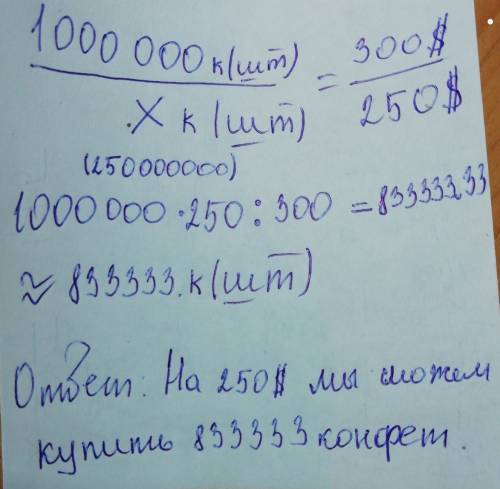 1000 000 к(шт) = 300$
.X к (шт) 250$
(250000000)
1000 000 · 250 : 300 = 833333,33
≈ 833333. к(шт)
Ответ: На 250$ мы можем
купить 833333 конфет.